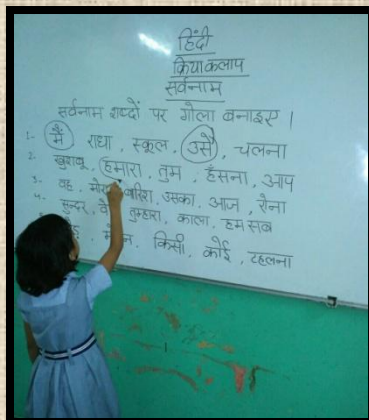 हिंदी
क्रियाकलाप
सर्वनाम
सर्वनाम शब्दों पर गोला बनाइए ।
1- मैं राधा , स्कूल , उसे , चलना
2- खुशबू , हमारा , तुम , हँसना , आप
3- वह , बारिश , उसका , आज , रोना
4- सुन्दर , वे तुम्हारा , काला , हम सब
किसी , कोई , टहलना